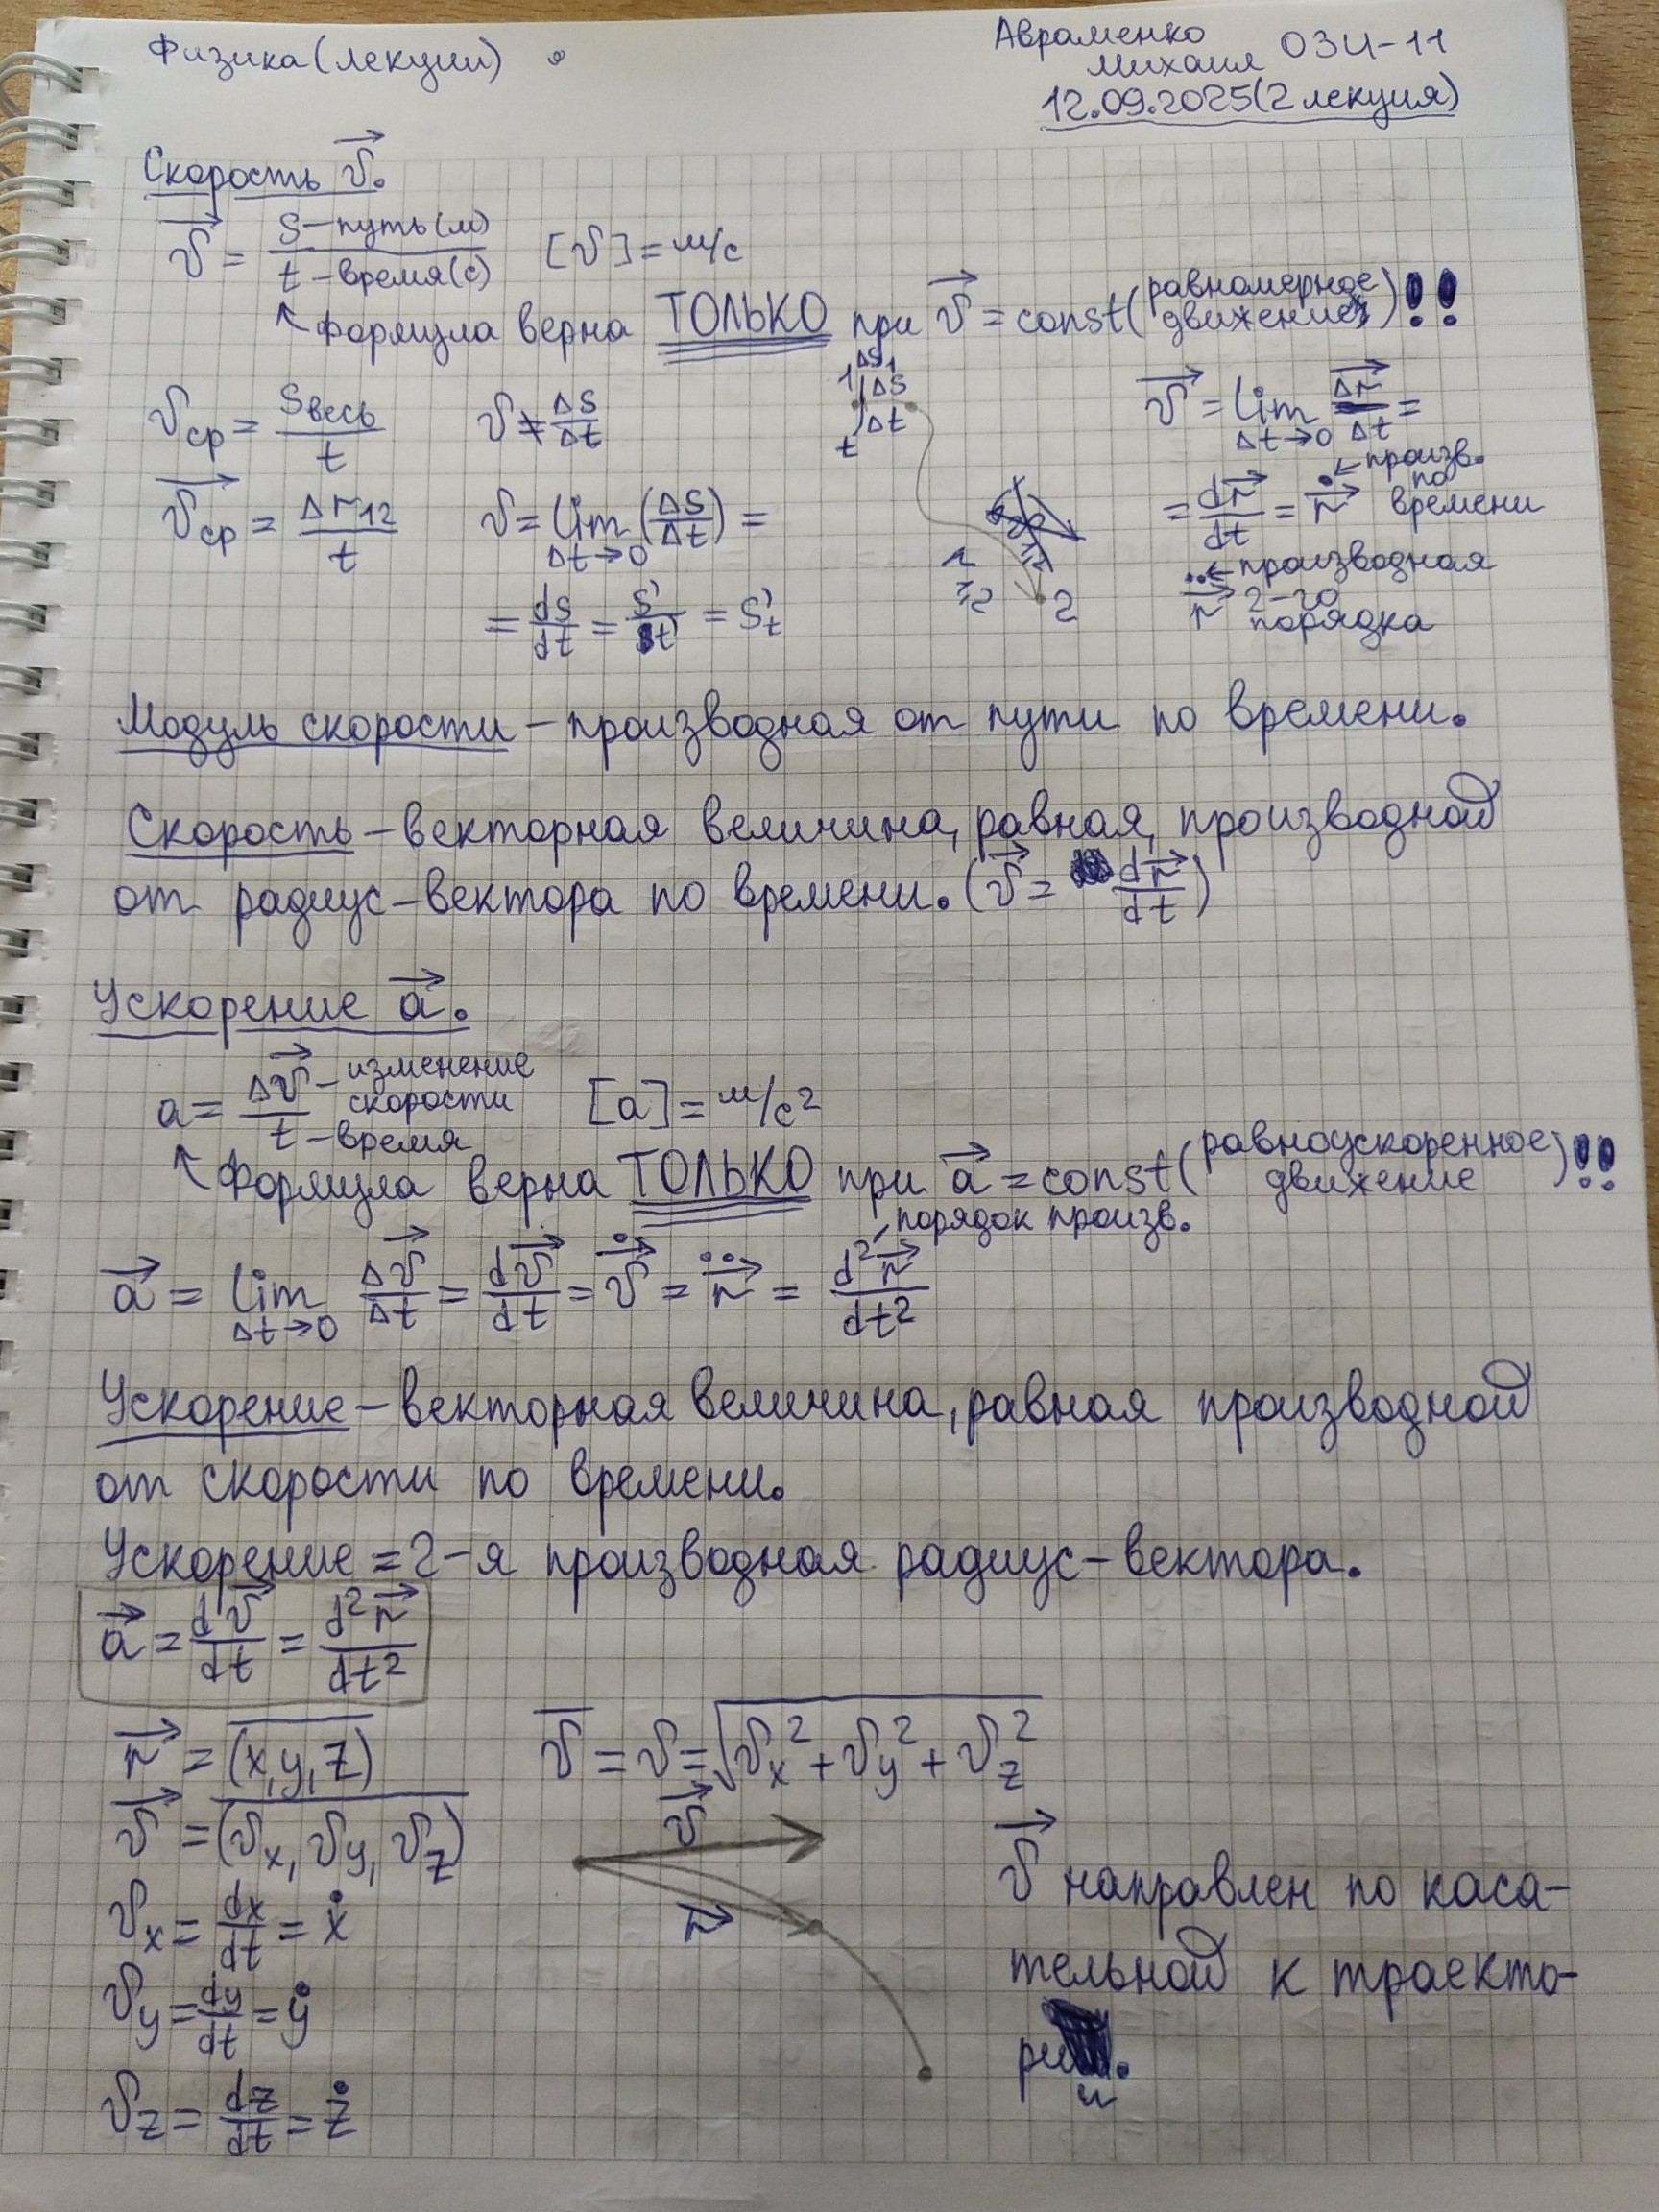 Физика(лекции)
Авраменко
Михаил ОЗИ-11
12.09.2025(2 лекция)
Скорость v⃗.
v⃗ = S – путь(м) / t – время(с)    [v] = м/с
↖ Формула верна ТОЛЬКО при v⃗ = const (равномерное движение)!!
vср = Sвесь / t    v ≠ ΔS/Δt
v⃗ср = Δr12 / t    v = lim Δt→0 (ΔS/Δt) =
= dS/dt = S'/t' = S't
1 ΔS1
ΔS
Δt
t
2
v⃗ = lim Δt→0 Δr⃗/Δt =
= dr⃗/dt = ṙ⃗ ← произв. по времени
r̈⃗ ← производная 2-го порядка
Модуль скорости – производная от пути по времени.
Скорость – векторная величина, равная, производной
от радиус-вектора по времени. (v⃗ = dr⃗/dt)
Ускорение a⃗.
a = Δv⃗ – изменение скорости / t – время    [a] = м/с²
↖ Формула верна ТОЛЬКО при a⃗ = const (равноускоренное движение)!!
порядок произв.
a⃗ = lim Δt→0 Δv⃗/Δt = dv⃗/dt = v̇⃗ = r̈⃗ = d²r⃗/dt²
Ускорение – векторная величина, равная производной
от скорости по времени.
Ускорение = 2-я производная радиус-вектора.
a⃗ = dv⃗/dt = d²r⃗/dt²
r⃗ = (x, y, z)    v̅ = v = √(vx² + vy² + vz²)
v⃗ = (vx, vy, vz)
vx = dx/dt = ẋ
vy = dy/dt = ẏ
vz = dz/dt = ż
v⃗
r⃗
v⃗ направлен по каса-
тельной к траекто-
рии.